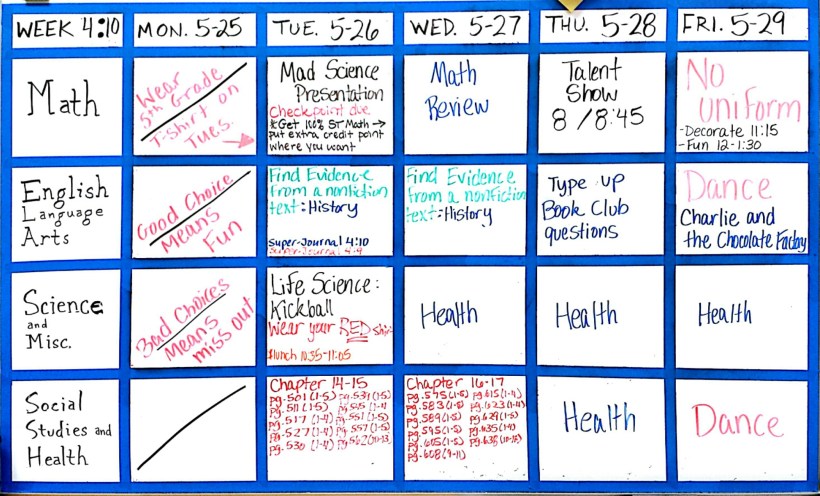 WEEK 4:10 MON. 5-25 TUE. 5-26 WED. 5-27 THU. 5-28 FRI. 5-29
Math
Wear
5th Grade
T-shirt on
Tues.
Mad Science
Presentation
Checkpoint due
*Get 100% ST Math →
put extra credit point
where you want
Math
Review
Talent
Show
8 / 8:45
No
uniform
-Decorate 11:15
-Fun 12-1:30
English
Language
Arts
Good Choice
Means
Fun
Find Evidence
from a nonfiction
text: History
super-Journal 4:10
super-Journal 4:9
Find Evidence
from a nonfiction
text: History
Type up
Book Club
questions
Dance
Charlie and
the Chocolate Factory
Science
and
Misc.
Bad Choices
Means
miss out
Life Science:
Kickball
Wear your RED shirt
lunch 10:35-11:05
Health
Health
Health
Social
Studies and
Health
Chapter 14-15
pg. 501 (1-5) pg. 531 (1-5)
pg. 511 (1-5)
pg. 517 (1-4) pg. 551 (1-5)
pg. 527 (1-4) pg. 557 (1-5)
pg. 536 (1-4) pg. 562 (10-13)
Chapter 16-17
pg. 575 (1-5) pg. 615 (1-4)
pg. 583 (1-5) pg. 623 (1-4)
pg. 589 (1-5) pg. 629 (1-5)
pg. 595 (1-5) pg. 635 (1-4)
pg. 605 (1-5) pg. 638 (10-15)
pg. 608 (9-11)
Health
Dance